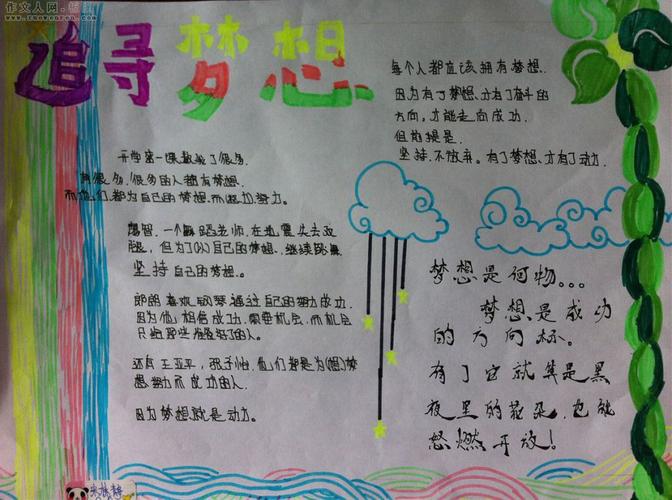 作文人网
追寻梦想
每个人都应该拥有梦想.
因为有了梦想.才有了奋斗的
方向,才能走向成功.
但前提是.
坚持.不放弃。有了梦想.才有了动力.
开学第一课教会了很多.
有很多.很多的人都有梦想.
而他们都为自己的梦想.而努力.
一个舞蹈老师,在地震失去双
腿,但为了自己的梦想、继续跳舞
坚持自己的梦想。
郎朗喜欢钢琴通过自己的努力成功.
因为他相信成功.需要机会.而机会
只给那些准备好了的人.
还有王亚平,他们都是为(想)梦
想努力而成功的人.
因为梦想就是动力。
梦想是何物...
梦想是成功
的方向标。
有了它就算是黑
夜里的花朵.也能
怒燃开放!